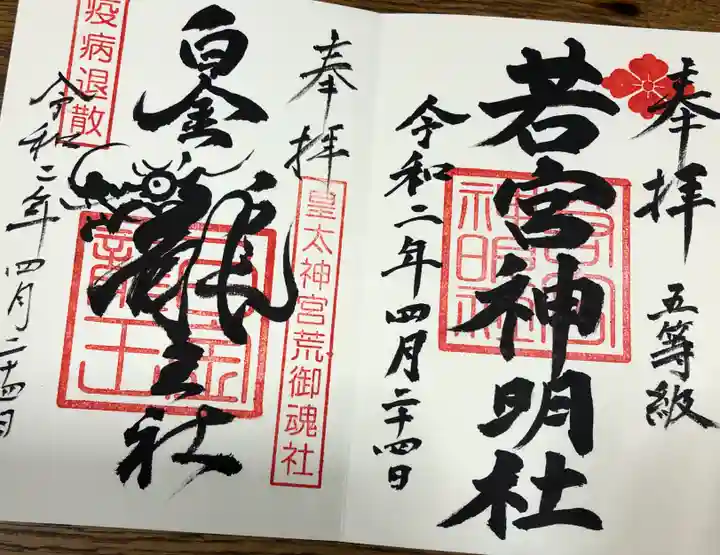 奉拝
五等級
若宮神明社
若宮
神明社
令和二年四月二十四日
奉拝
皇太神宮荒御魂社
白金龍王社
白金
龍王
疫病退散
令和二年四月二十四日